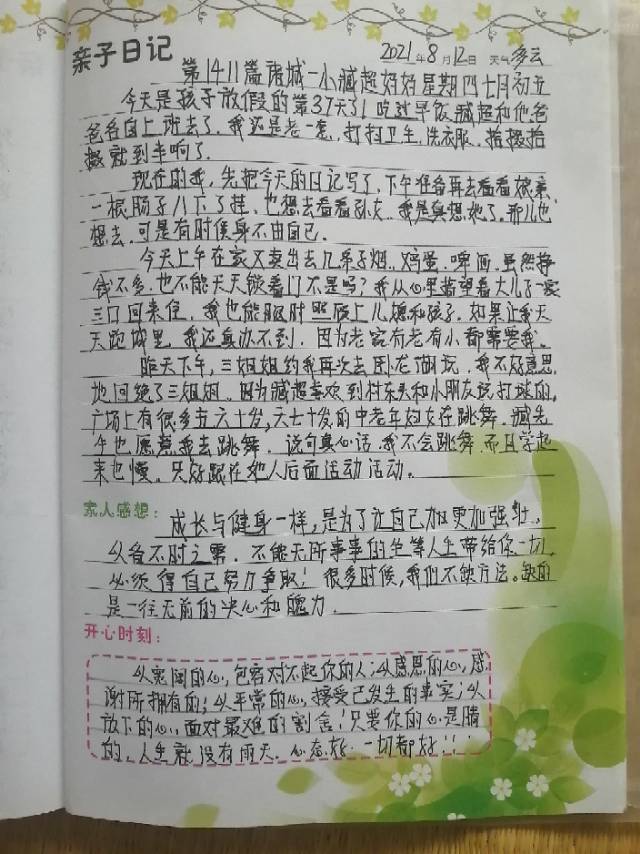 亲子日记
2021年8月12日 天气多云
第1411篇诸城一小臧超妈妈星期四七月初五
今天是孩子放假的第37天了!吃过早饭,臧超和他爸
爸各自上班去了。我还是老一套,打扫卫生,洗衣服,拾掇拾
掇就到半晌了。
现在的我,先把今天的日记写了,下午准备再去看看娘亲,
一根肠子八下了挂,也想去看看孙女,我是真想她了。那儿也
想去,可是有时侯身不由自己。
今天上午在家又卖出去几条子烟、鸡蛋、啤酒,虽然挣
钱不多,也不能天天锁着门不是吗?我从心里希望着大儿子一家
三口回来住,我也能及时照顾上儿媳和孩子。如果让我天
天跑城里,我还真办不到,因为老家有老有小都需要我。
昨天下午,三姐姐约我再次去卧龙湖玩,我不好意思
地回绝了三姐姐。因为臧超喜欢到村东头和小朋友玩打球的,
广场上有很多五六十岁,六七十岁的中老年妇女在跳舞。臧先
生也愿意我去跳舞,说句真心话,我不会跳舞,而且学起
来也慢,只好跟在她人后面活动活动。
家人感想:
成长与健身一样,是为了让自己加更加强壮,
以备不时之需,不能无所事事的坐等人生带给你一切,
必须得自己努力争取!很多时侯,我们不缺方法。缺的
是一往无前的决心和魄力.
开心时刻:
以宽阔的心,包容对不起你的人;以感恩的心,感
谢所拥有的;以平常的心,接受已发生的事实;以
放下的心,面对最难的割舍!只要你的心是晴
的,人生就没有雨天。心态好,一切都好!!!